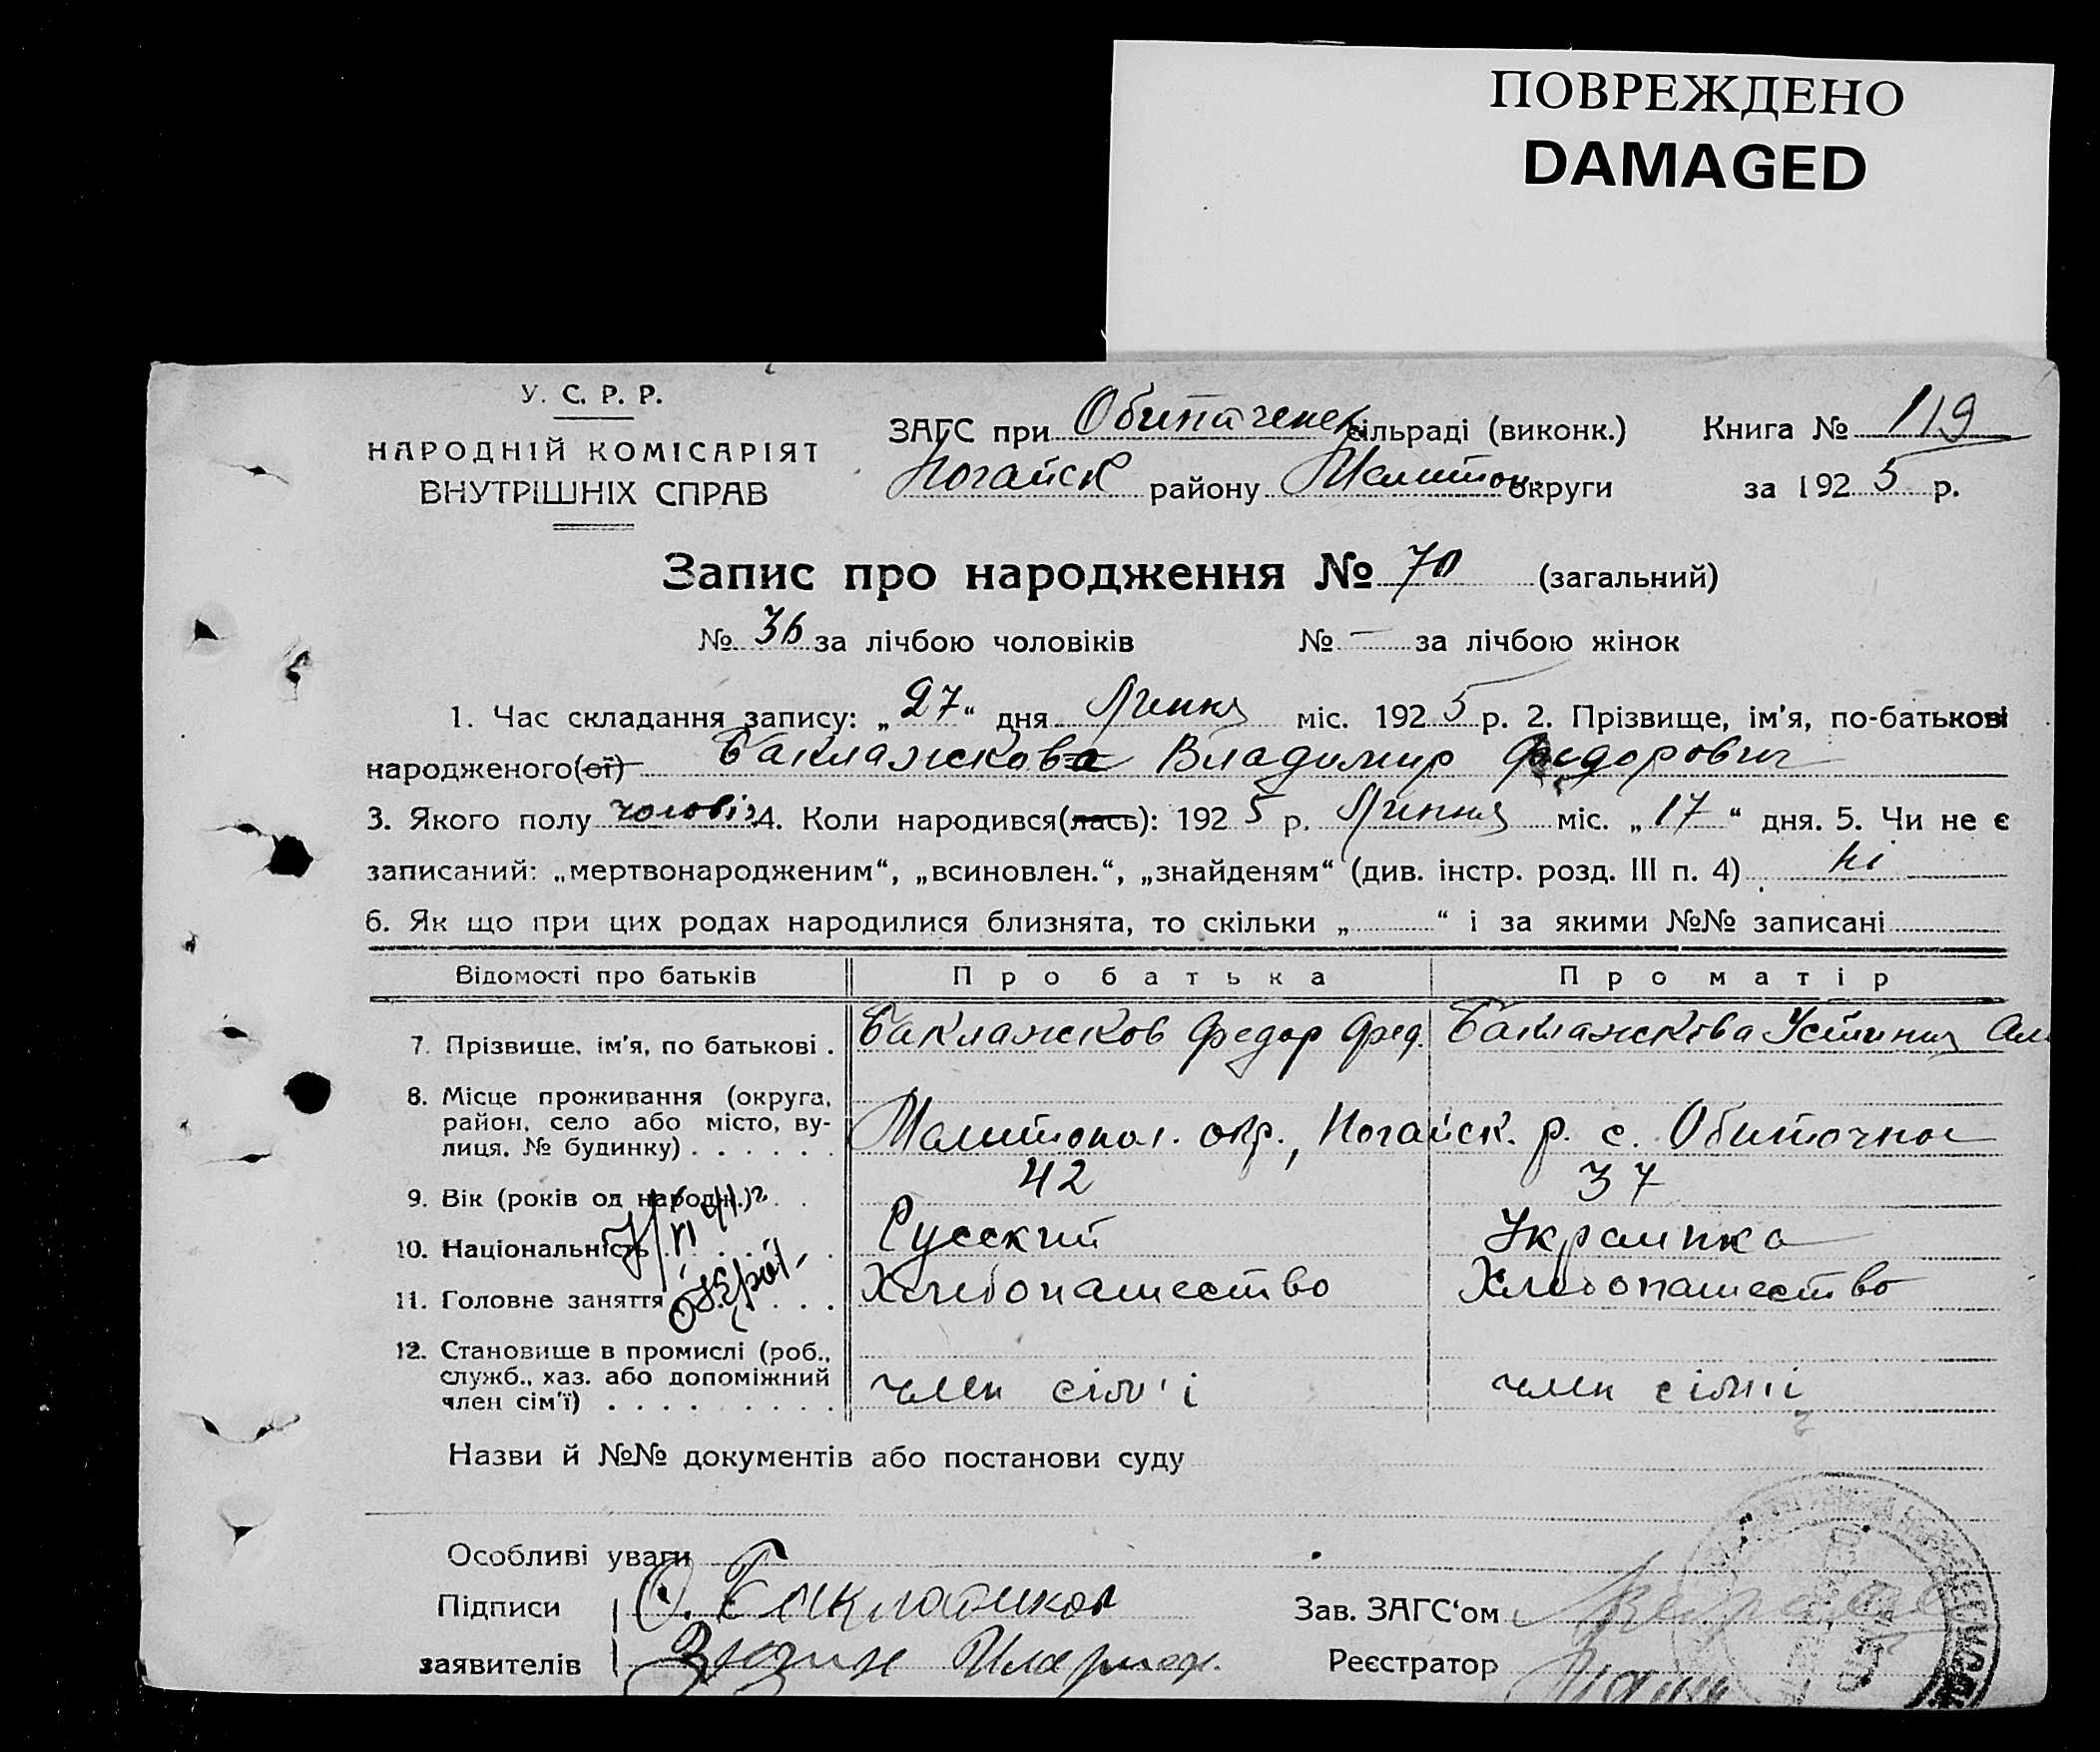 ПОВРЕЖДЕНО
DAMAGED
У. С. Р. Р.
НАРОДНІЙ КОМІСАРІЯТ
ВНУТРІШНІХ СПРАВ
ЗАГС при Обиточенск сільраді (виконк.) Книга № 119
Ногайск району Мелитоп. округи за 1925 р.
Запис про народження № 70 (загальний)
№ 36 за лічбою чоловіків № — за лічбою жінок
1. Час складання запису: „27“ дня Липня міс. 1925 р. 2. Прізвище, ім'я, по-батькові
народженого(ої) Баклажкова Владимир Федорович
3. Якого полу чоловіч 4. Коли народився(лась): 1925 р. Липня міс. „17“ дня. 5. Чи не є
записаний: „мертвонародженим“, „всиновлен.“, „знайденям“ (див. інстр. розд. III п. 4) ні
6. Як що при цих родах народилися близнята, то скільки „ “ і за якими №№ записані
Відомості про батьків Про батька Про матір
7. Прізвище, ім'я, по батькові . Баклажков Федор Фед. Баклажкова Устиния
8. Місце проживання (округа,
район, село або місто, ву-
лиця, № будинку) . . . . . . Мелитопол. окр., Ногайск. р. с. Обиточное
9. Вік (років од народж.) . . 42 37
10. Національність . . . . Русский Украинка
11. Головне заняття . . . . Хлебопашество Хлебопашество
12. Становище в промислі (роб.,
служб., хаз. або допоміжний
член сім'ї) . . . . . . . . . член сім'ї член сімії
Назви й №№ документів або постанови суду
Особливі уваги
Підписи Зав. ЗАГС'ом
заявителів Реєстратор